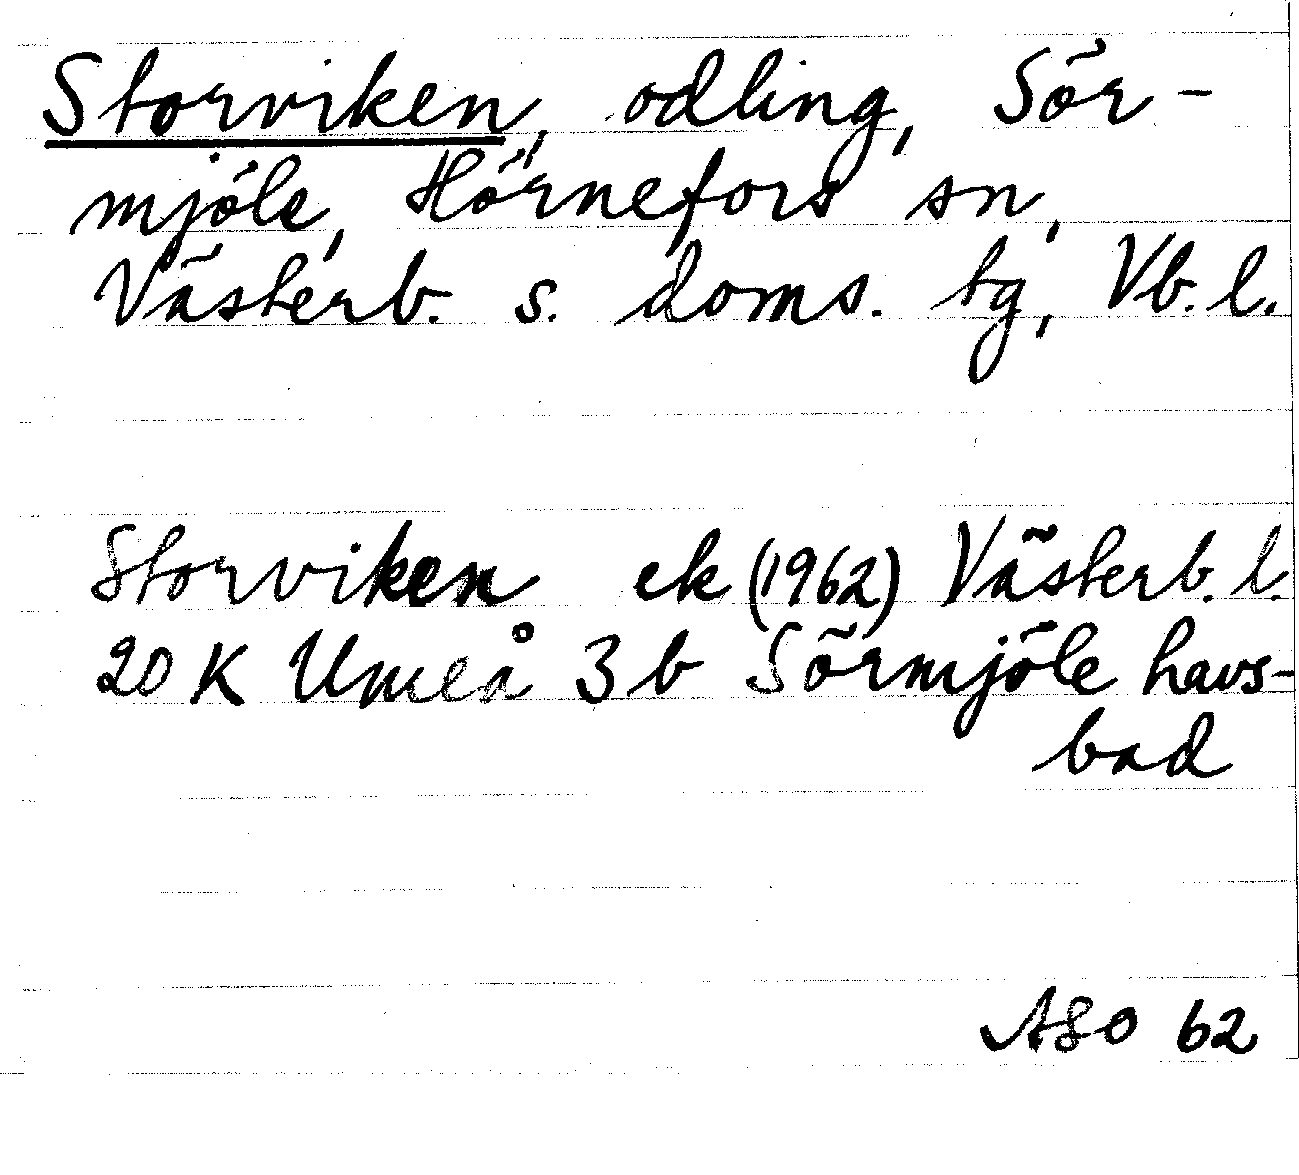 Storviken, odling, Sör-
mjöle, Hörnefors sn,
Västerb. s. doms. tg, Vb. l.
Storviken ek (1962) Västerb. l.
20 K Umeå 3 b Sörmjöle havs-
bad
ASO 62